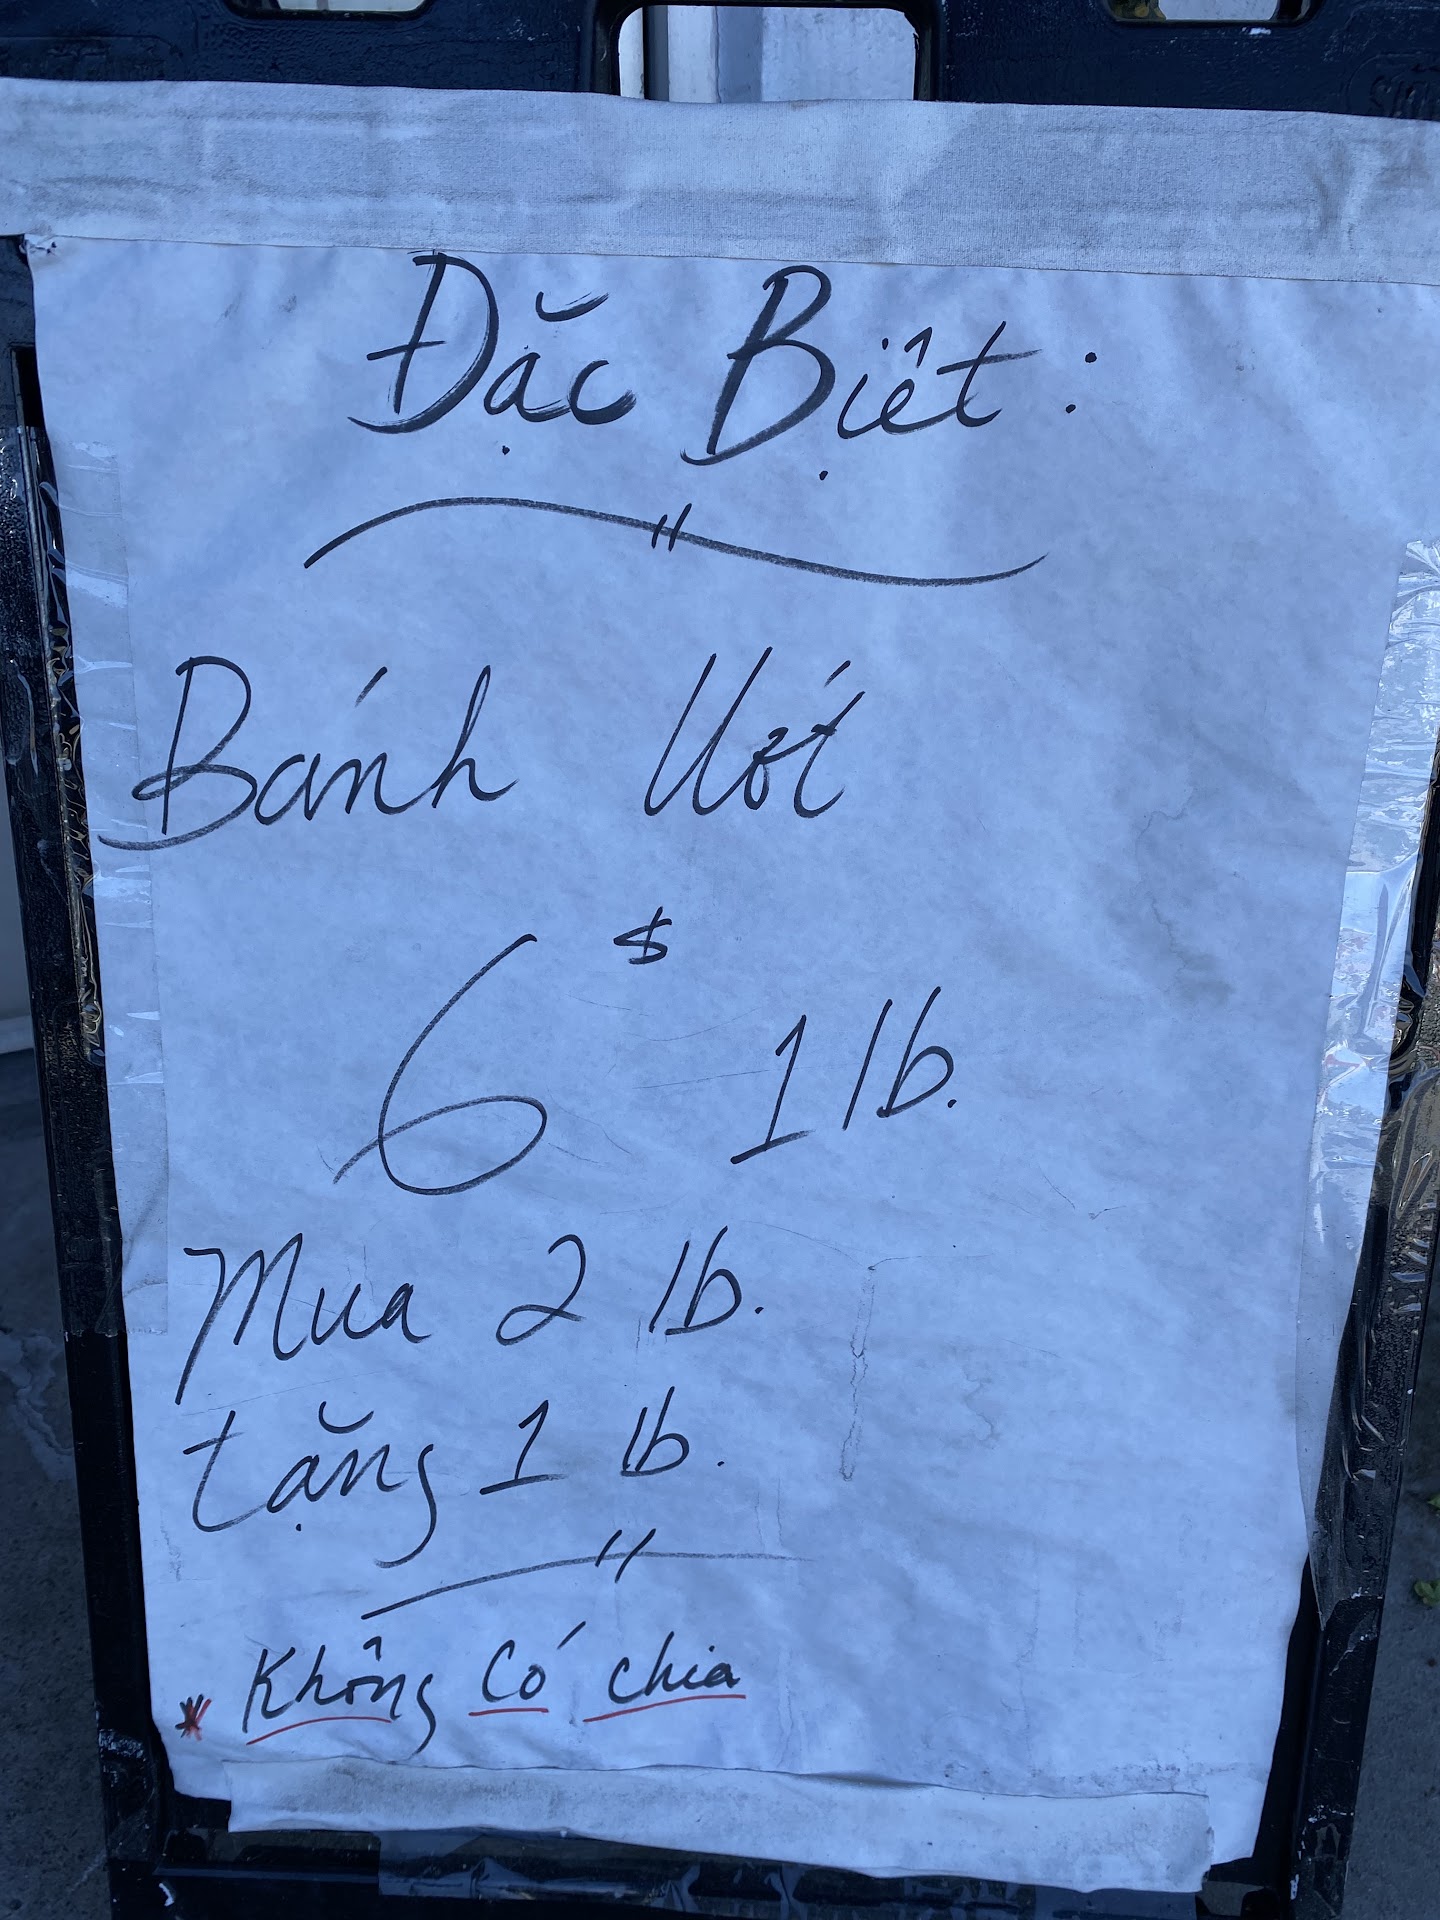 Đặc Biệt:
Bánh Ướt
6$ 1 lb.
Mua 2 lb.
tặng 1 lb.
* Không có chia